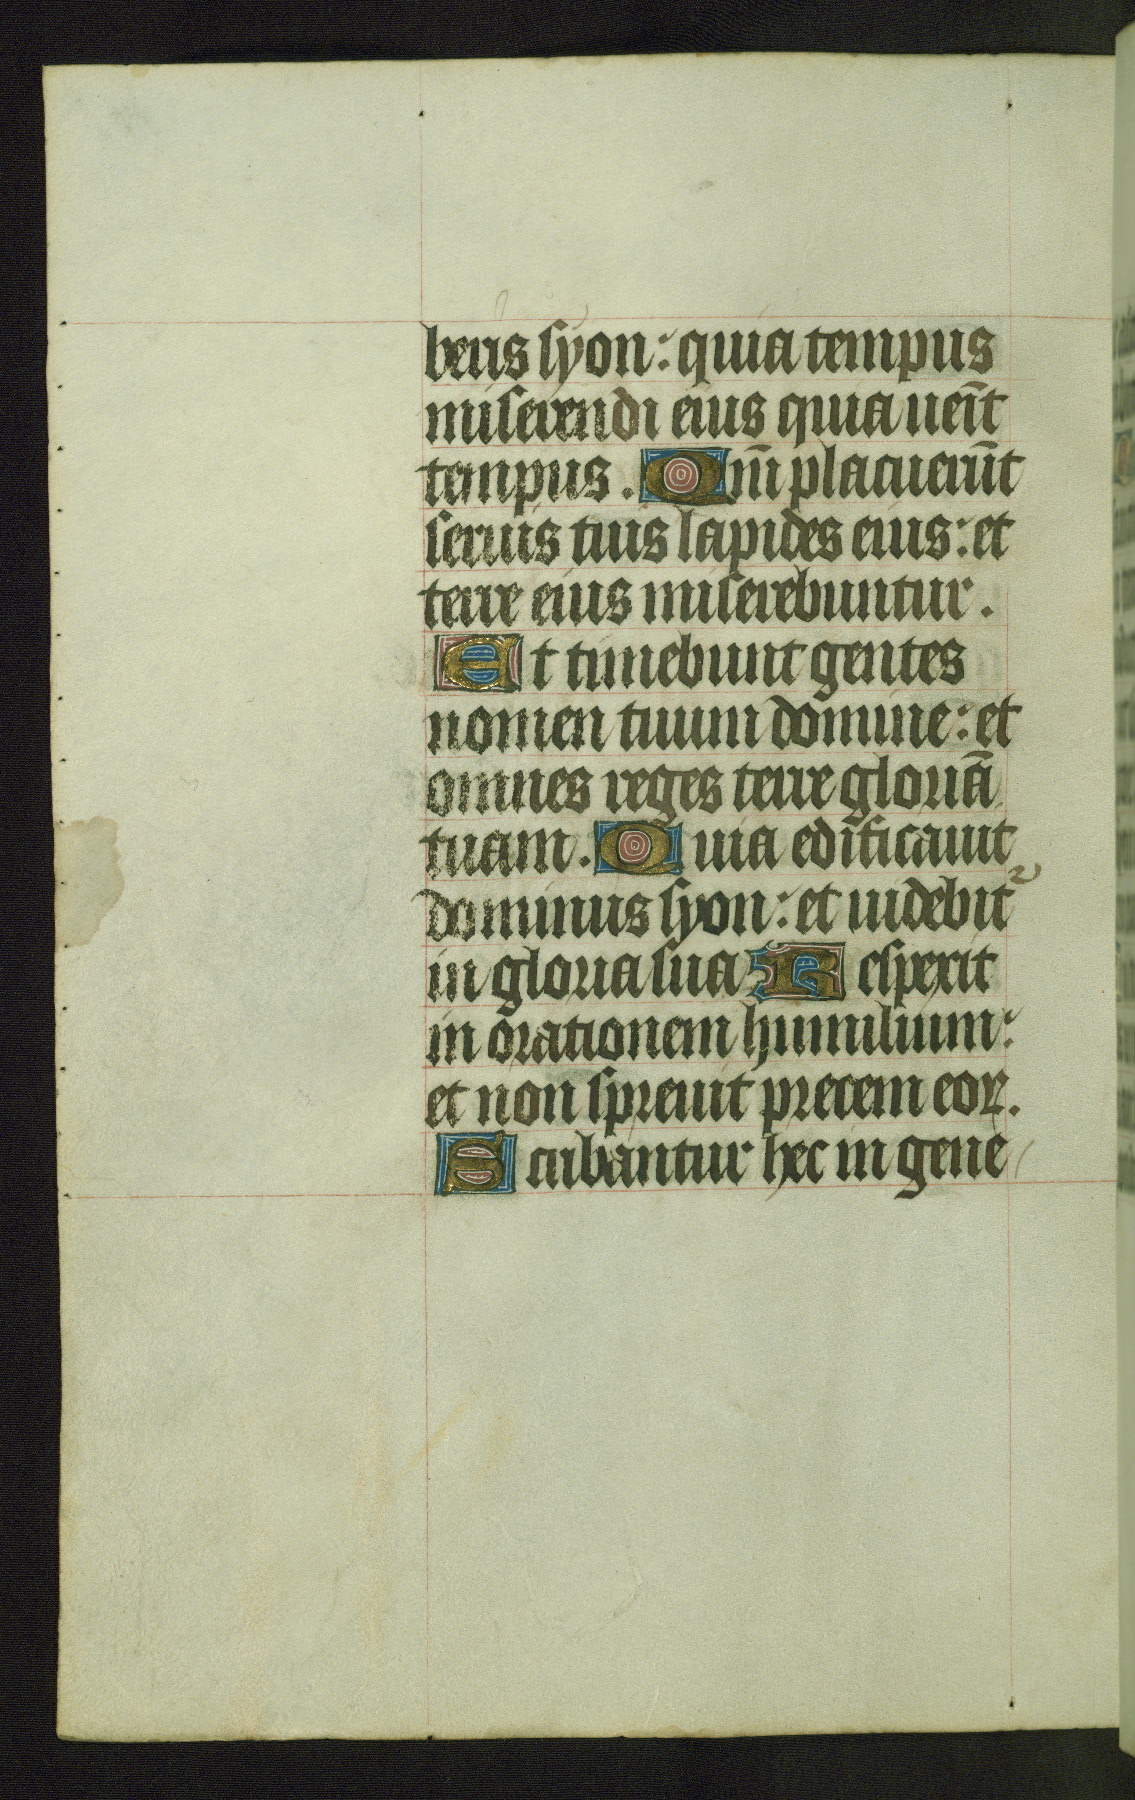 beris syon: quia tempus
miserendi eius quia ueīt
tempus. Qm̄ placuerūt
seruis tuis lapides eius: et
terre eius miserebuntur.
Et timebunt gentes
nomen tuum domine: et
omnes reges terre gloriā
tuam. Quia edificauit
dominus syon: et uidebitᷣ
in gloria sua Respexit
in orationem humilium:
et non spreuit precem eoꝝ.
Scribantur hec in gene